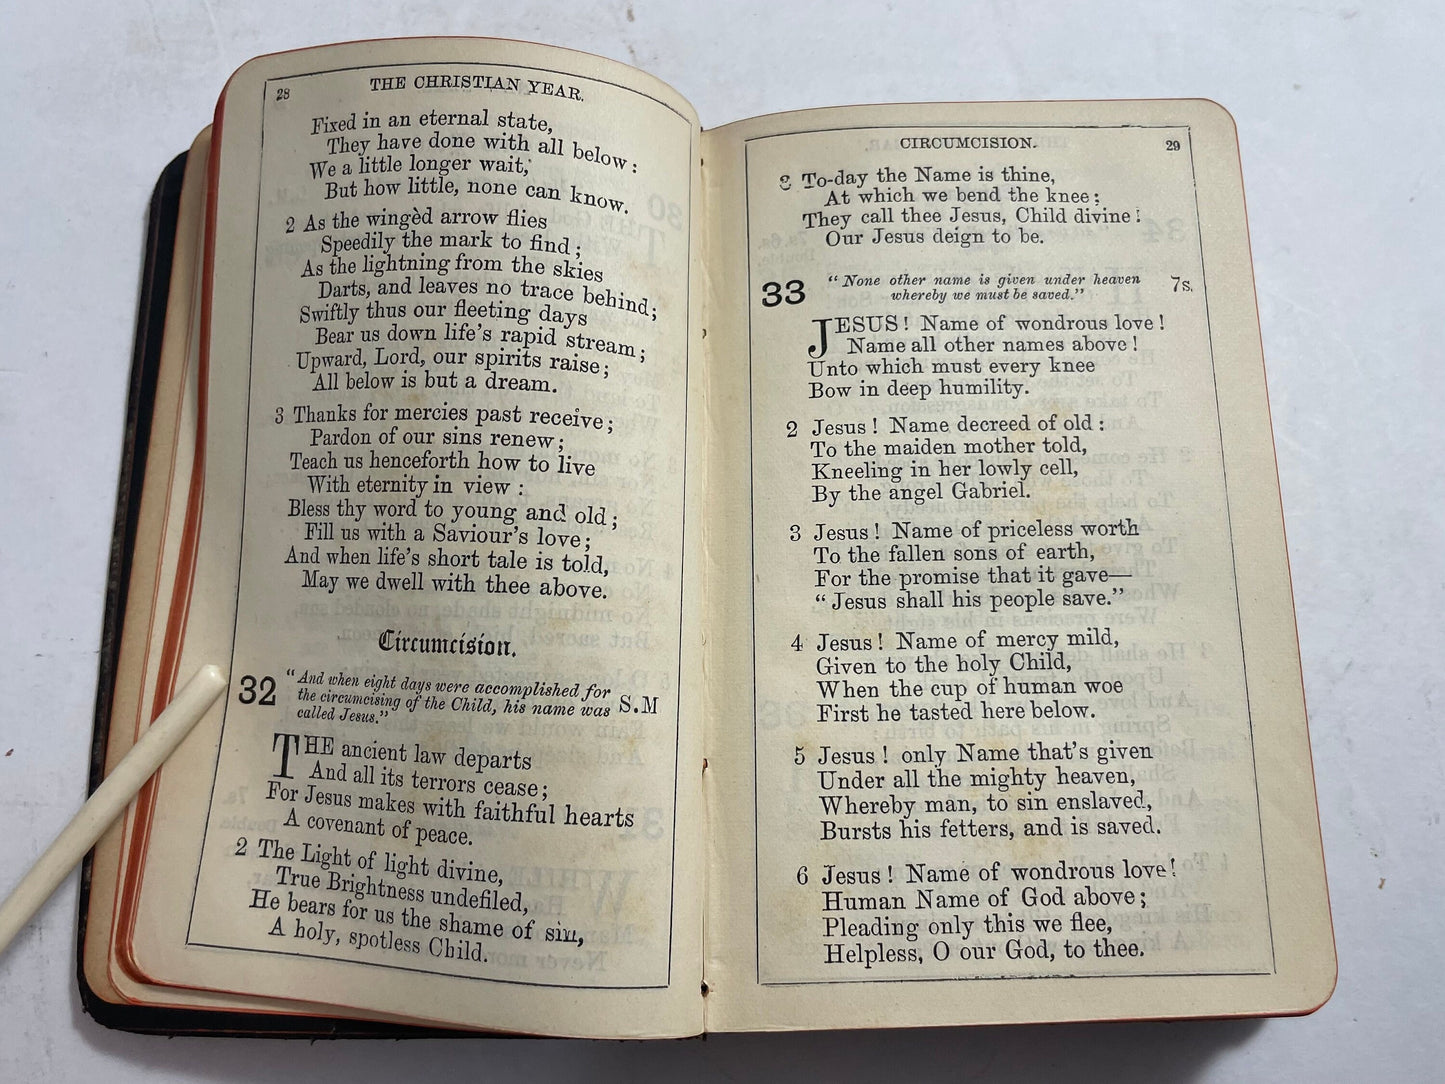 28
THE CHRISTIAN YEAR.
Fixed in an eternal state,
They have done with all below:
We a little longer wait;
But how little, none can know.
2 As the wingèd arrow flies
Speedily the mark to find;
As the lightning from the skies
Darts, and leaves no trace behind;
Swiftly thus our fleeting days
Bear us down life's rapid stream;
Upward, Lord, our spirits raise;
All below is but a dream.
3 Thanks for mercies past receive;
Pardon of our sins renew;
Teach us henceforth how to live
With eternity in view:
Bless thy word to young and old;
Fill us with a Saviour's love;
And when life's short tale is told,
May we dwell with thee above.
Circumcision.
32 "And when eight days were accomplished for
the circumcising of the Child, his name was S.M
called Jesus."
THE ancient law departs
And all its terrors cease;
For Jesus makes with faithful hearts
A covenant of peace.
2 The Light of light divine,
True Brightness undefiled,
He bears for us the shame of sin,
A holy, spotless Child.
CIRCUMCISION.
29
3 To-day the Name is thine,
At which we bend the knee;
They call thee Jesus, Child divine!
Our Jesus deign to be.
33 "None other name is given under heaven 7s.
whereby we must be saved."
JESUS! Name of wondrous love!
Name all other names above!
Unto which must every knee
Bow in deep humility.
2 Jesus! Name decreed of old:
To the maiden mother told,
Kneeling in her lowly cell,
By the angel Gabriel.
3 Jesus! Name of priceless worth
To the fallen sons of earth,
For the promise that it gave—
"Jesus shall his people save."
4 Jesus! Name of mercy mild,
Given to the holy Child,
When the cup of human woe
First he tasted here below.
5 Jesus! only Name that's given
Under all the mighty heaven,
Whereby man, to sin enslaved,
Bursts his fetters, and is saved.
6 Jesus! Name of wondrous love!
Human Name of God above;
Pleading only this we flee,
Helpless, O our God, to thee.